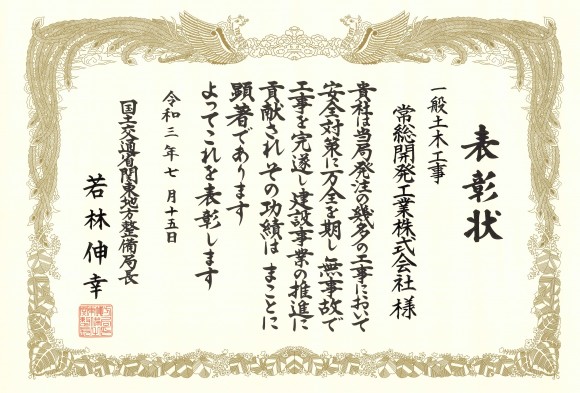 表彰状
一般土木工事
常総開発工業株式会社 様
貴社は当局発注の幾多の工事において
安全対策に万全を期し 無事故で
工事を完遂し 建設事業の推進に
貢献され その功績は まことに
顕著であります
よってこれを表彰します
令和三年七月十五日
国土交通省関東地方整備局長
若林伸幸